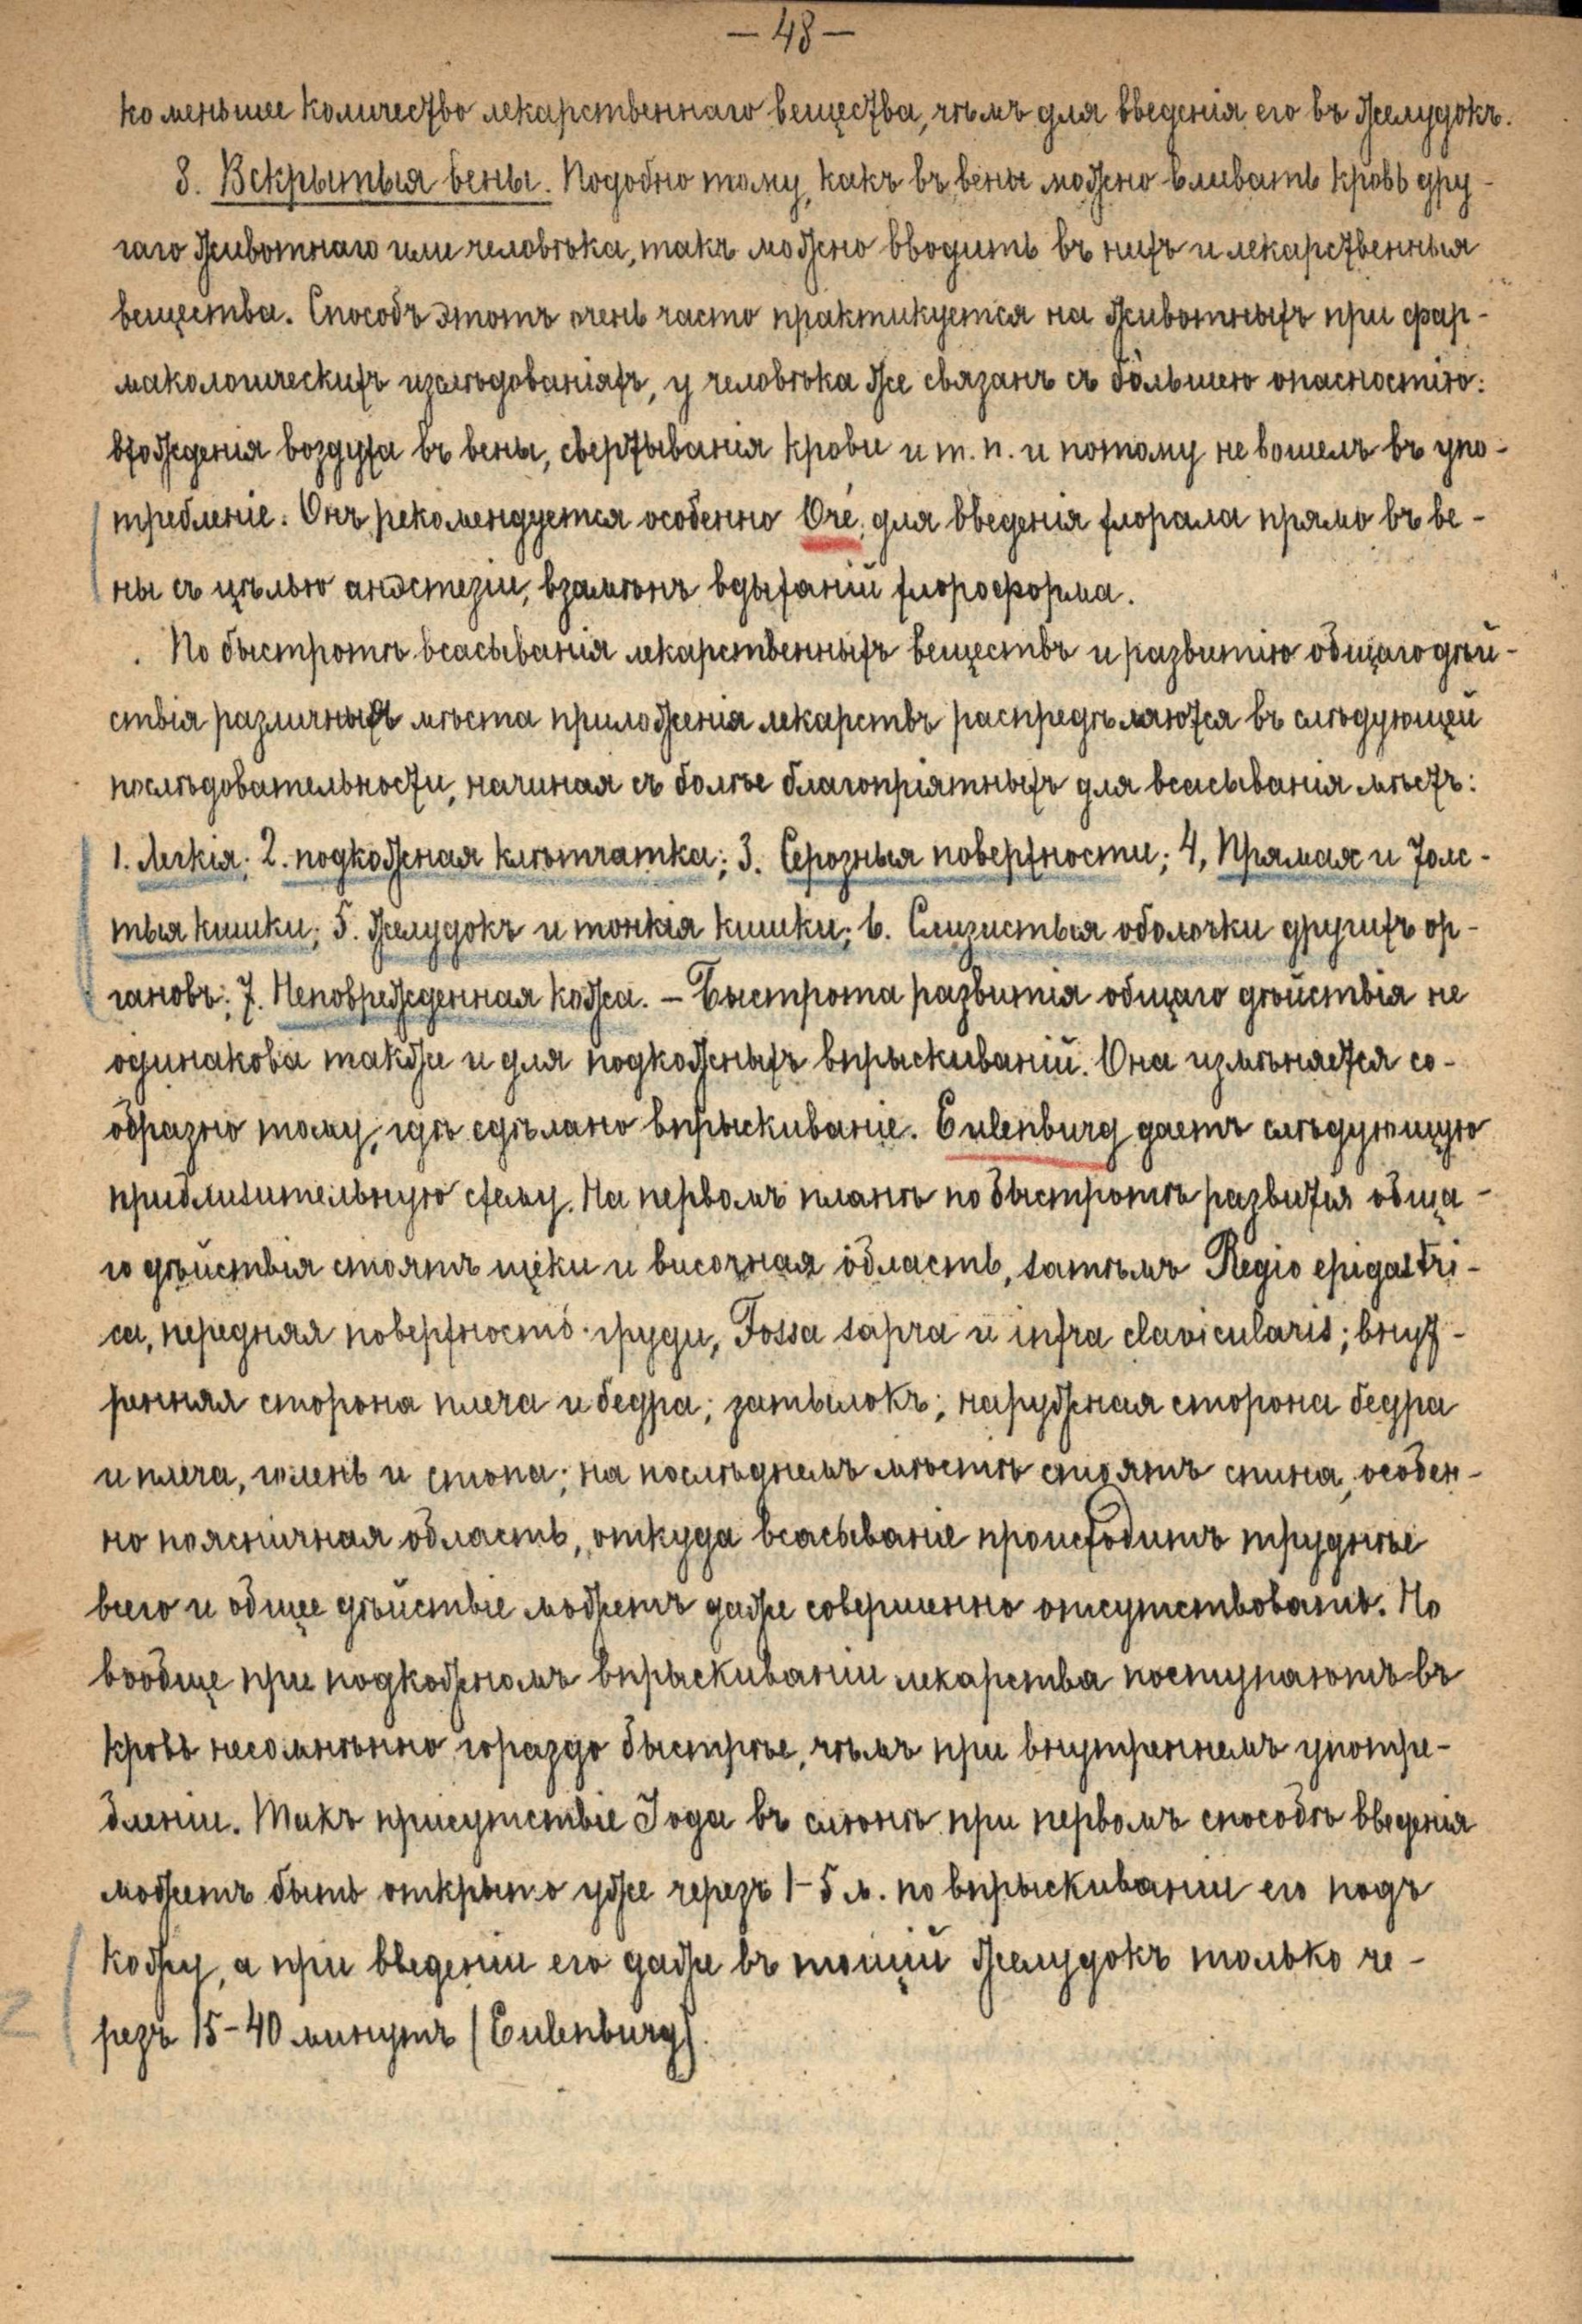 — 48 —
ко меньшее количество лекарственнаго вещества, чѣмъ для введенія его въ желудокъ.
8. Вскрытыя вены. Подобно тому, какъ въ вены можно вливать кровь дру-
гаго животнаго или человѣка, такъ можно вводить въ нихъ и лекарственныя
вещества. Способъ этотъ очень часто практикуется на животныхъ при фар-
макологическихъ изслѣдованіяхъ, у человѣка же связанъ съ большею опасностію:
вхожденія воздуха въ вены, свертыванія крови и т. п. и потому не вошелъ въ упо-
требленіе. Онъ рекомендуется особенно Oré, для введенія хлорала прямо въ ве-
ны съ цѣлью анэстезіи, взамѣнъ вдыханій хлороформа.
По быстротѣ всасыванія лекарственныхъ веществъ и развитію общаго дѣй-
ствія различныя мѣста приложенія лекарствъ распредѣляются въ слѣдующей
послѣдовательности, начиная съ болѣе благопріятныхъ для всасыванія мѣстъ:
1. Легкія; 2. подкожная клѣтчатка; 3. Серозныя поверхности; 4, Прямая и толс-
тыя кишки; 5. Желудокъ и тонкія кишки; 6. Слизистыя оболочки другихъ ор-
гановъ; 7. Неповрежденная кожа. — Быстрота развитія общаго дѣйствія не
одинакова также и для подкожныхъ впрыскиваній. Она измѣняется со-
образно тому, гдѣ сдѣлано впрыскиваніе. Eulenburg даетъ слѣдующую
приблизительную схему. На первомъ планѣ по быстротѣ развитія обща-
го дѣйствія стоятъ щеки и височная область, затѣмъ Regio epigastri-
ca, передняя поверхность груди, Fossa sapra и infra clavicularis; внут-
ренняя сторона плеча и бедра; затылокъ; наружная сторона бедра
и плеча, голень и стопа; на послѣднемъ мѣстѣ стоятъ спина, особен-
но поясничная область, откуда всасываніе происходитъ труднѣе
всего и общее дѣйствіе можетъ даже совершенно отсутствовать. Но
вообще при подкожномъ впрыскиваніи лекарства поступаютъ въ
кровь несомнѣнно гораздо быстрѣе, чѣмъ при внутреннемъ употре-
бленіи. Такъ присутствіе Iода въ слюнѣ при первомъ способѣ введенія
можетъ быть открыто уже черезъ 1-5 м. по впрыскиваніи его подъ
кожу, а при введеніи его даже въ тощій желудокъ только че-
резъ 15-40 минутъ (Eulenburg).